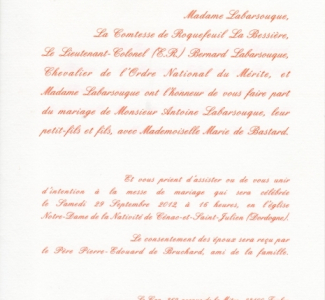 Madame Labarsouque,
La Comtesse de Roquefeuil La Bessière,
Le Lieutenant-Colonel (E.R.) Bernard Labarsouque,
Chevalier de l'Ordre National du Mérite, et
Madame Labarsouque ont l'honneur de vous faire part
du mariage de Monsieur Antoine Labarsouque, leur
petit-fils et fils, avec Mademoiselle Marie de Bastard.
Et vous prient d'assister ou de vous unir
d'intention à la messe de mariage qui sera célébrée
le Samedi 29 Septembre 2012, à 16 heures, en l'église
Notre-Dame de la Nativité de Cénac-et-Saint-Julien (Dordogne).
Le consentement des époux sera reçu par
le Père Pierre-Edouard de Bruchard, ami de la famille.